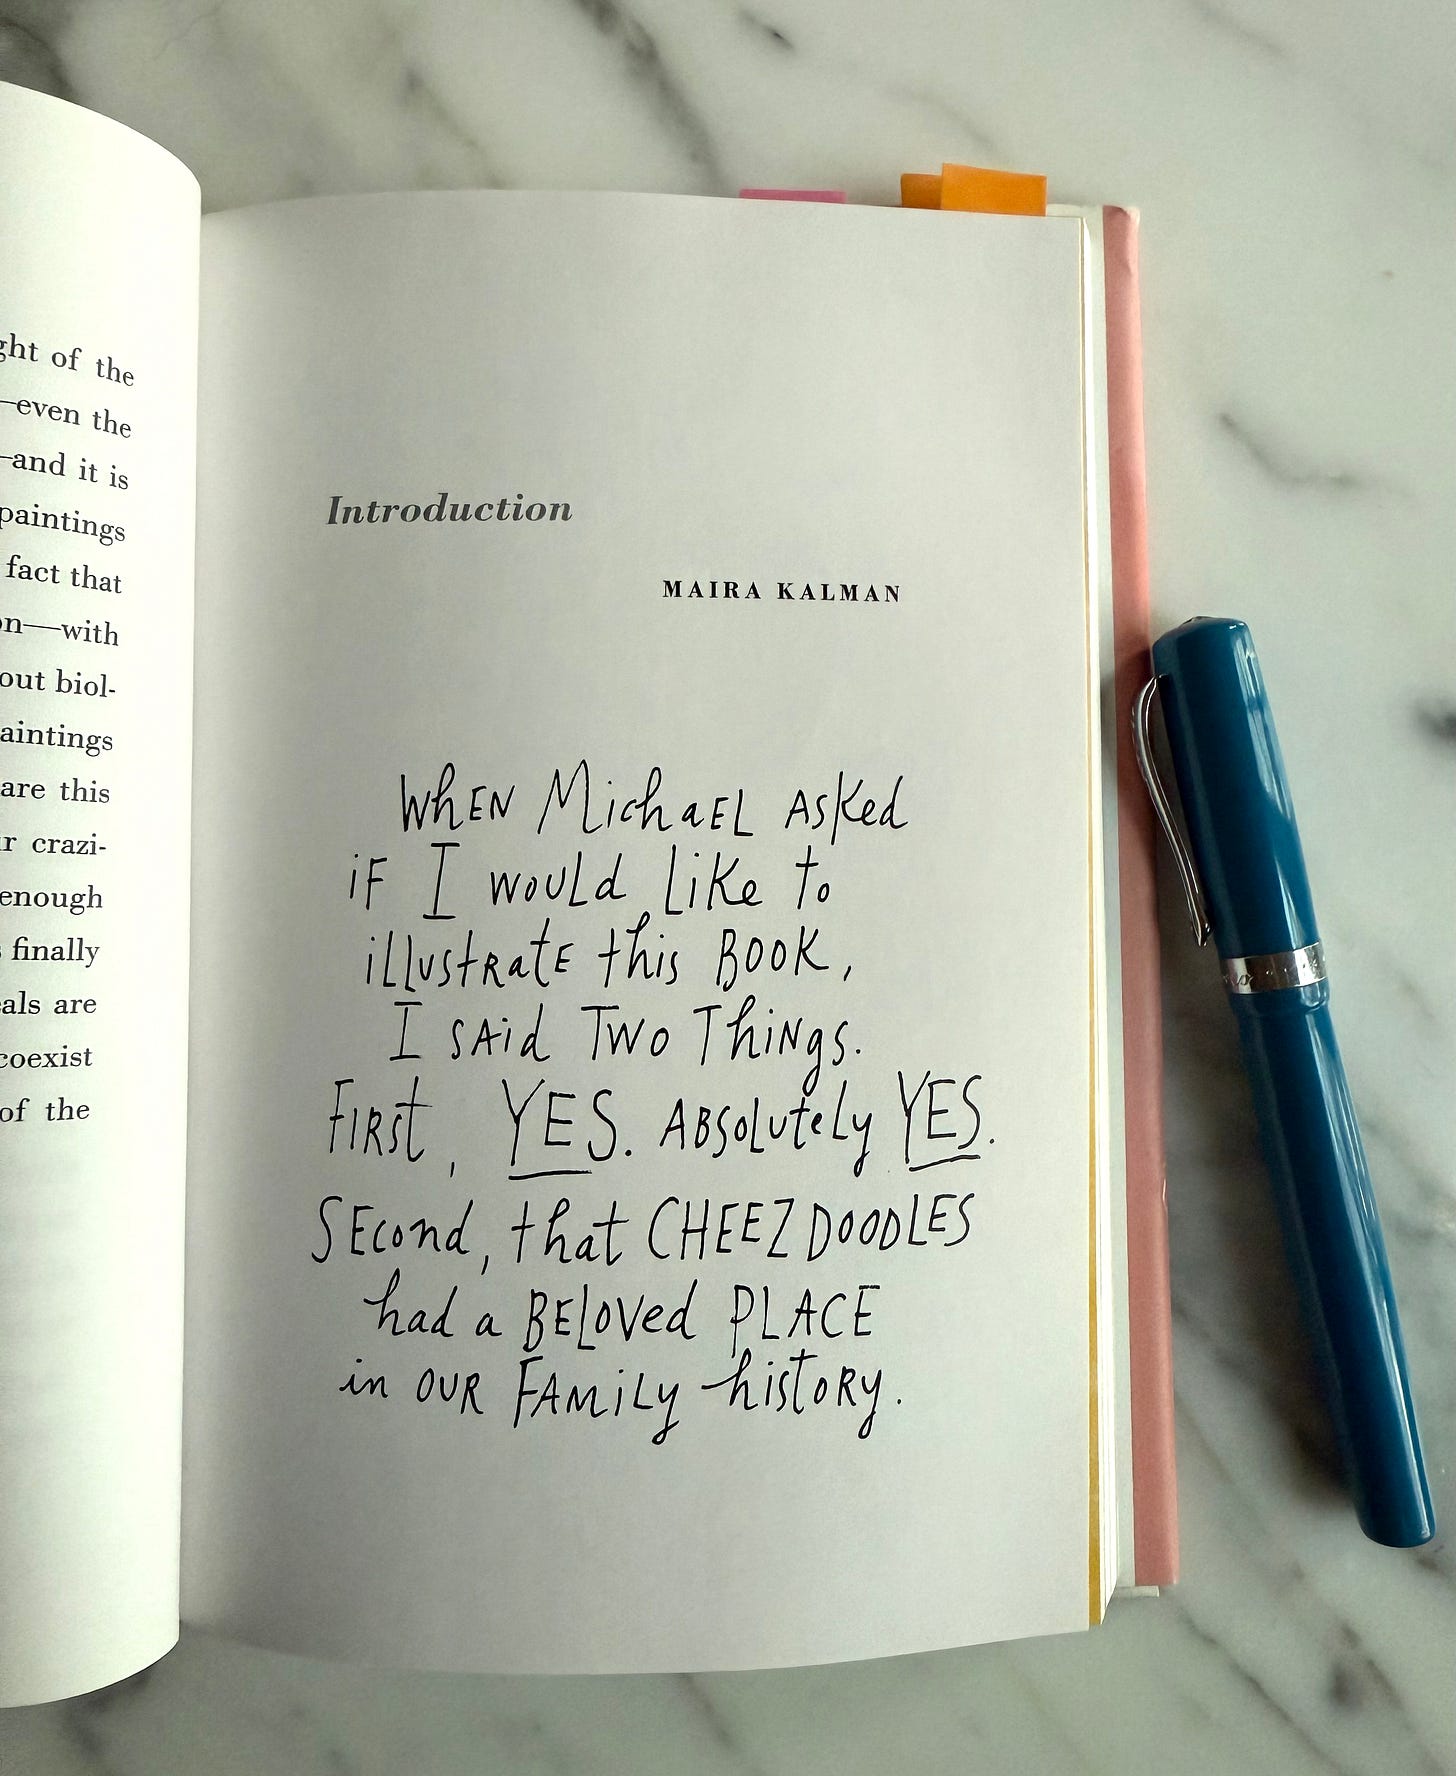 ght of the
—even the
—and it is
paintings
fact that
on—with
out biol-
aintings
are this
r crazi-
enough
s finally
als are
coexist
of the
Introduction
MAIRA KALMAN
WhEN MichaEL ASKed
iF I WOULd LiKe to
iLLUstRatE this BOOK,
I SAid TWO ThiNgs.
FIRSt, YES. ABSOLUteLy YES.
SEcond, that CHEEZ DOODLES
had a BELOVed PLACE
in OUR FAMiLy histORy.